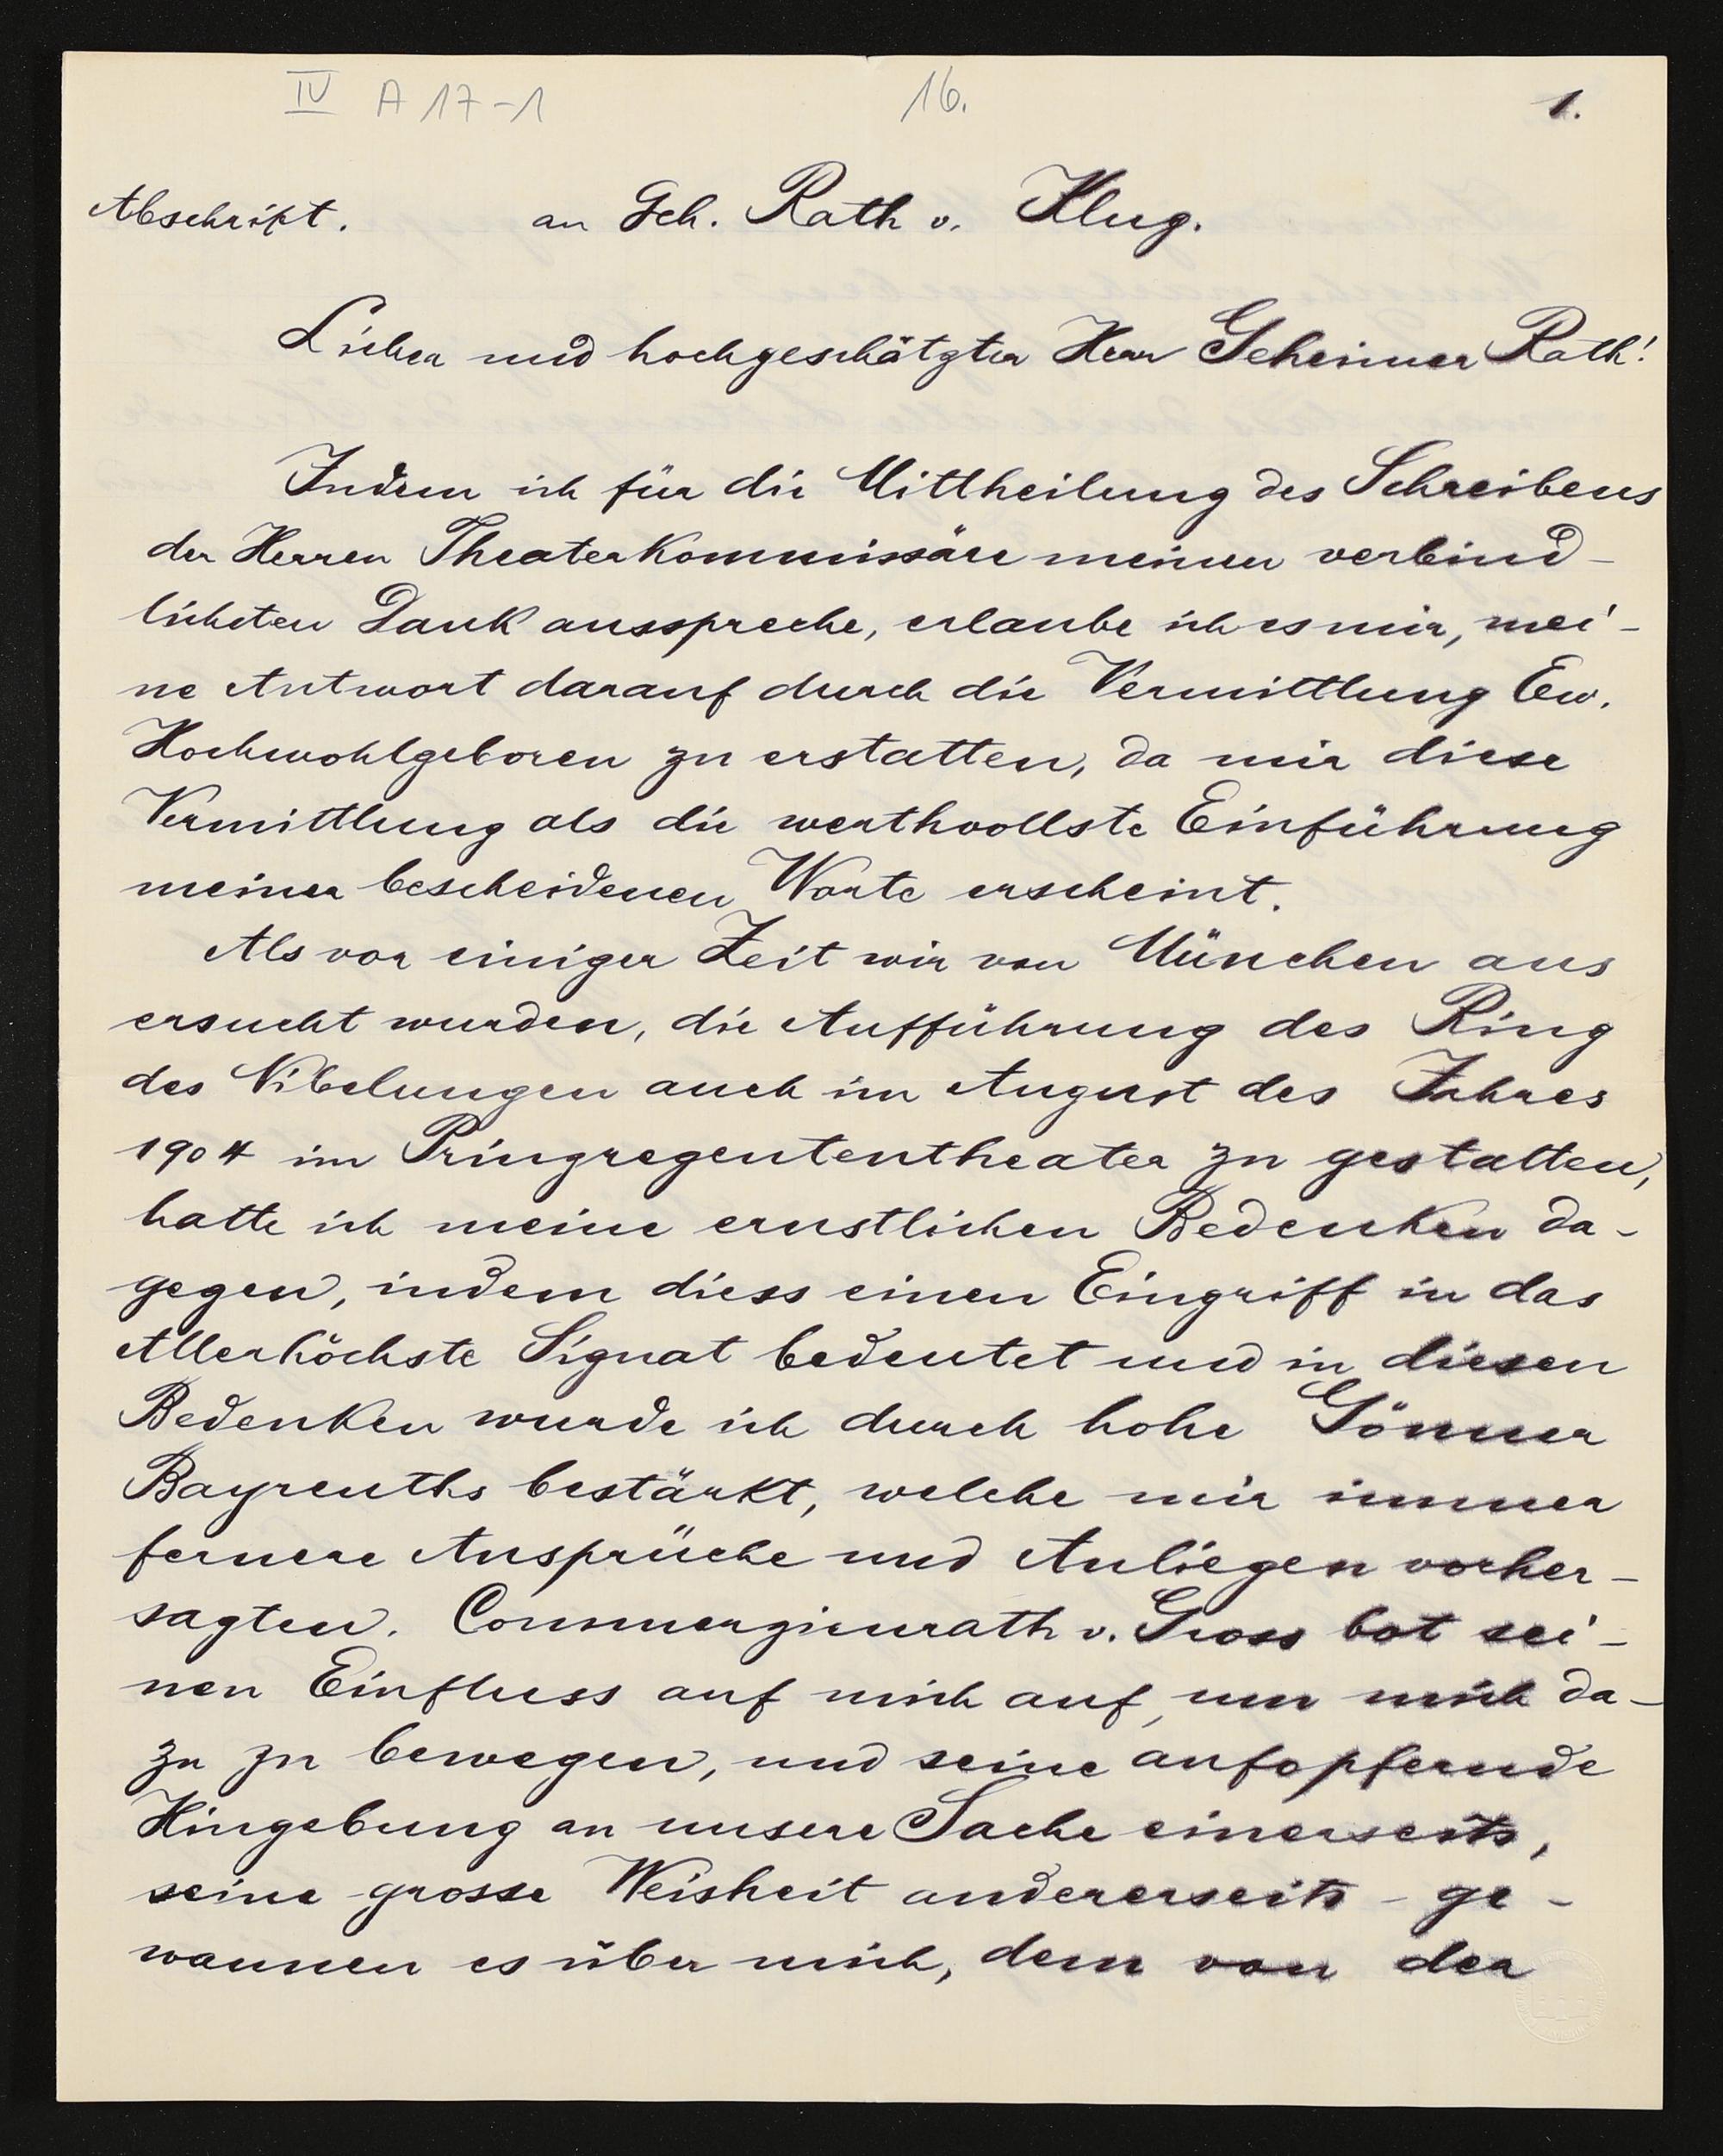 IV A 17-1 16. 1.
Abschrift. an Geh. Rath v. Klug.
Lieber und hochgeschätzter Herr Geheimer Rath!
Indem ich für die Mittheilung des Schreibens
der Herren Theaterkommissäre meinen verbind-
lichsten Dank ausspreche, erlaube ich es mir, mei-
ne Antwort darauf durch die Vermittlung Ew.
Hochwohlgeboren zu erstatten, da mir diese
Vermittlung als die werthvollste Einführung
meiner bescheidenen Worte erscheint.
Als vor einiger Zeit wir von München aus
ersucht wurden, die Aufführung des Ring
des Nibelungen auch im August des Jahres
1904 im Prinzregententheater zu gestatten,
hatte ich meine ernstlichen Bedenken da-
gegen, indem diess einen Eingriff in das
Allerhöchste Signat bedeutet und in diesen
Bedenken wurde ich durch hohe Gönner
Bayreuths bestärkt, welche mir immer
fernere Ansprüche und Anliegen vorher-
sagten. Commerzienrath v. Gross bot sei-
nen Einfluss auf mich auf, um mich da-
zu zu bewegen, und seine aufopfernde
Hingebung an unsere Sache einerseits,
seine grosse Weisheit andererseits - ge-
wannen es über mich, dem von der